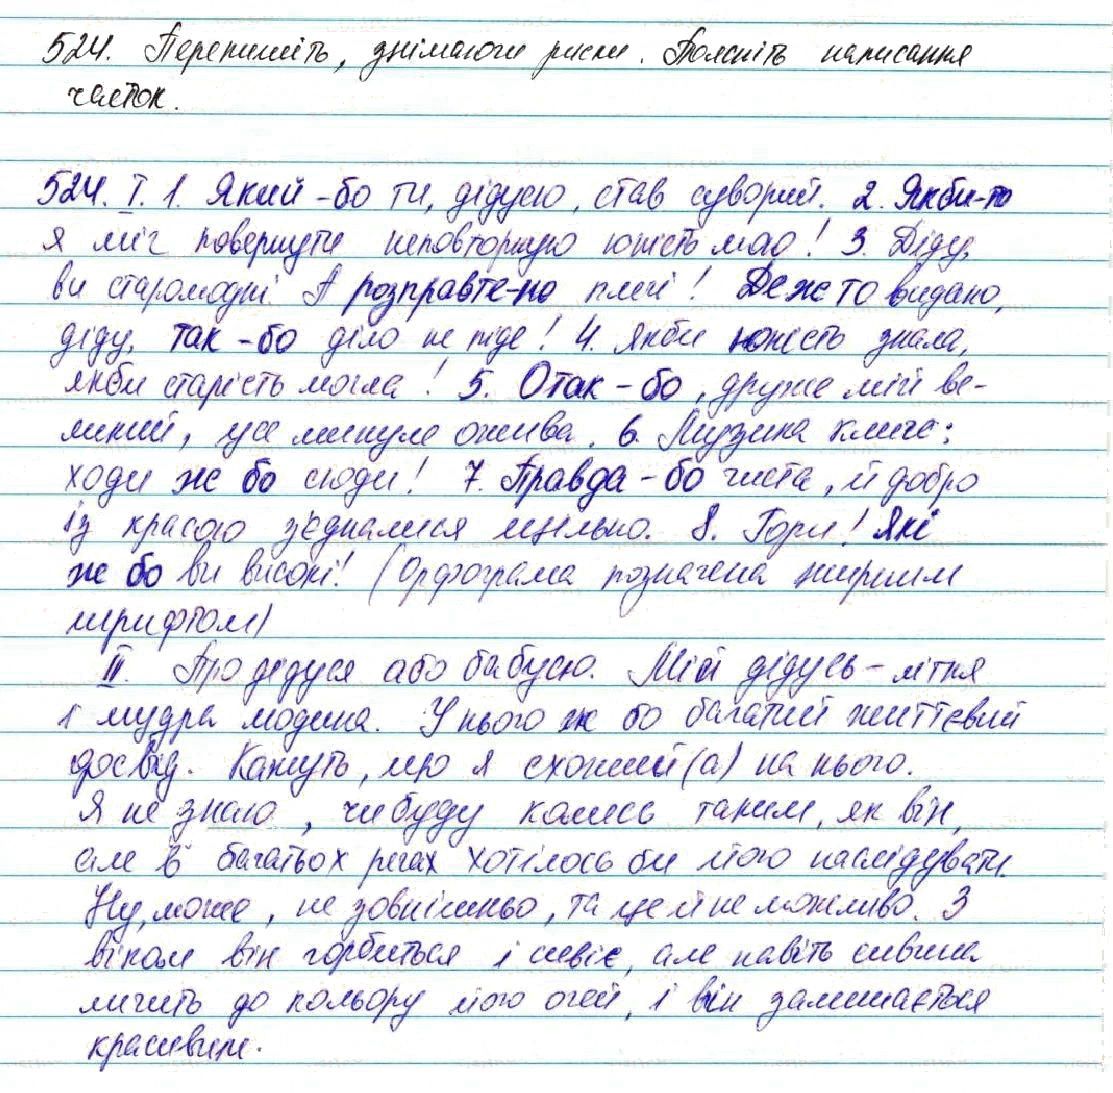 524. Перепишіть, знімаючи риски. Поясніть написання
часток.
524. I. 1. Який-бо ти, дідусю, став суворий. 2. Якби-то
я міг повернути неповторную юність мою! 3. Діду,
ви старомодні. А розправте-но плечі! Де ж то видано,
діду, так-бо діло не піде! 4. Якби юність знала,
якби старість могла! 5. Отак-бо, друже мій ве-
ликий, усе минуле ожива. 6. Музика кличе:
ходи ж бо сюди! 7. Правда-бо чиста, й добро
із красою з'єдналися щільно. 8. Гори! Які
ж бо ви високі! (Орфограма позначена жирним
шрифтом)
II. Про дідуся або бабусю. Мій дідусь – літня
і мудра людина. У нього ж бо багатий життєвий
досвід. Кажуть, що я схожий(а) на нього.
Я не знаю, чи буду колись таким, як він,
але в багатьох речах хотілось би його наслідувати.
Ну, може, не зовнішньо, та це й не можливо. З
віком він горбиться і сивіє, але навіть сивина
личить до кольору його очей, і він залишається
красивим.